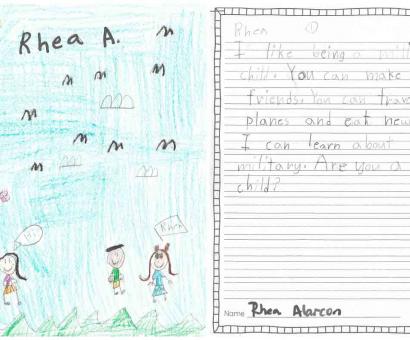 Rhea A.
Hi
Rhea
Rhea 1
I like being a
child. You can make
friends. You can
planes and eat new
I can learn about
military. Are you a
child?
Name Rhea Alarcon